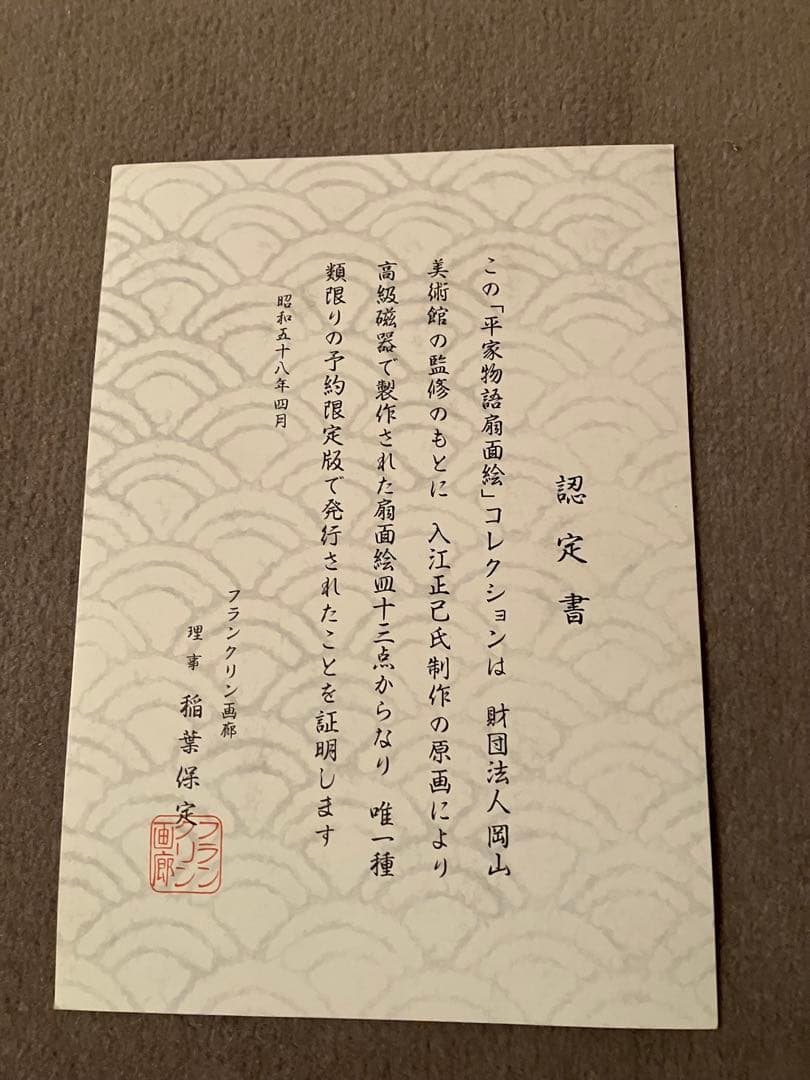 認定書
この「平家物語扇面絵」コレクションは　財団法人岡山
美術館の監修のもとに　入江正己氏制作の原画により
高級磁器で製作された扇面絵四十三点からなり　唯一種
類限りの予約限定版で発行されたことを証明します
昭和五十八年四月
フランクリン画廊
理事　稲葉保定
フラン
クリン
画廊